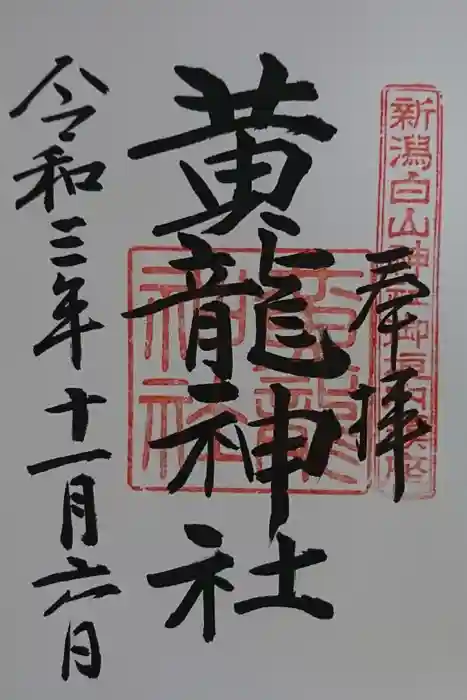 新潟白山神社御境内鎮座
奉拝
黄龍神社
黄龍神社
令和三年十一月六日